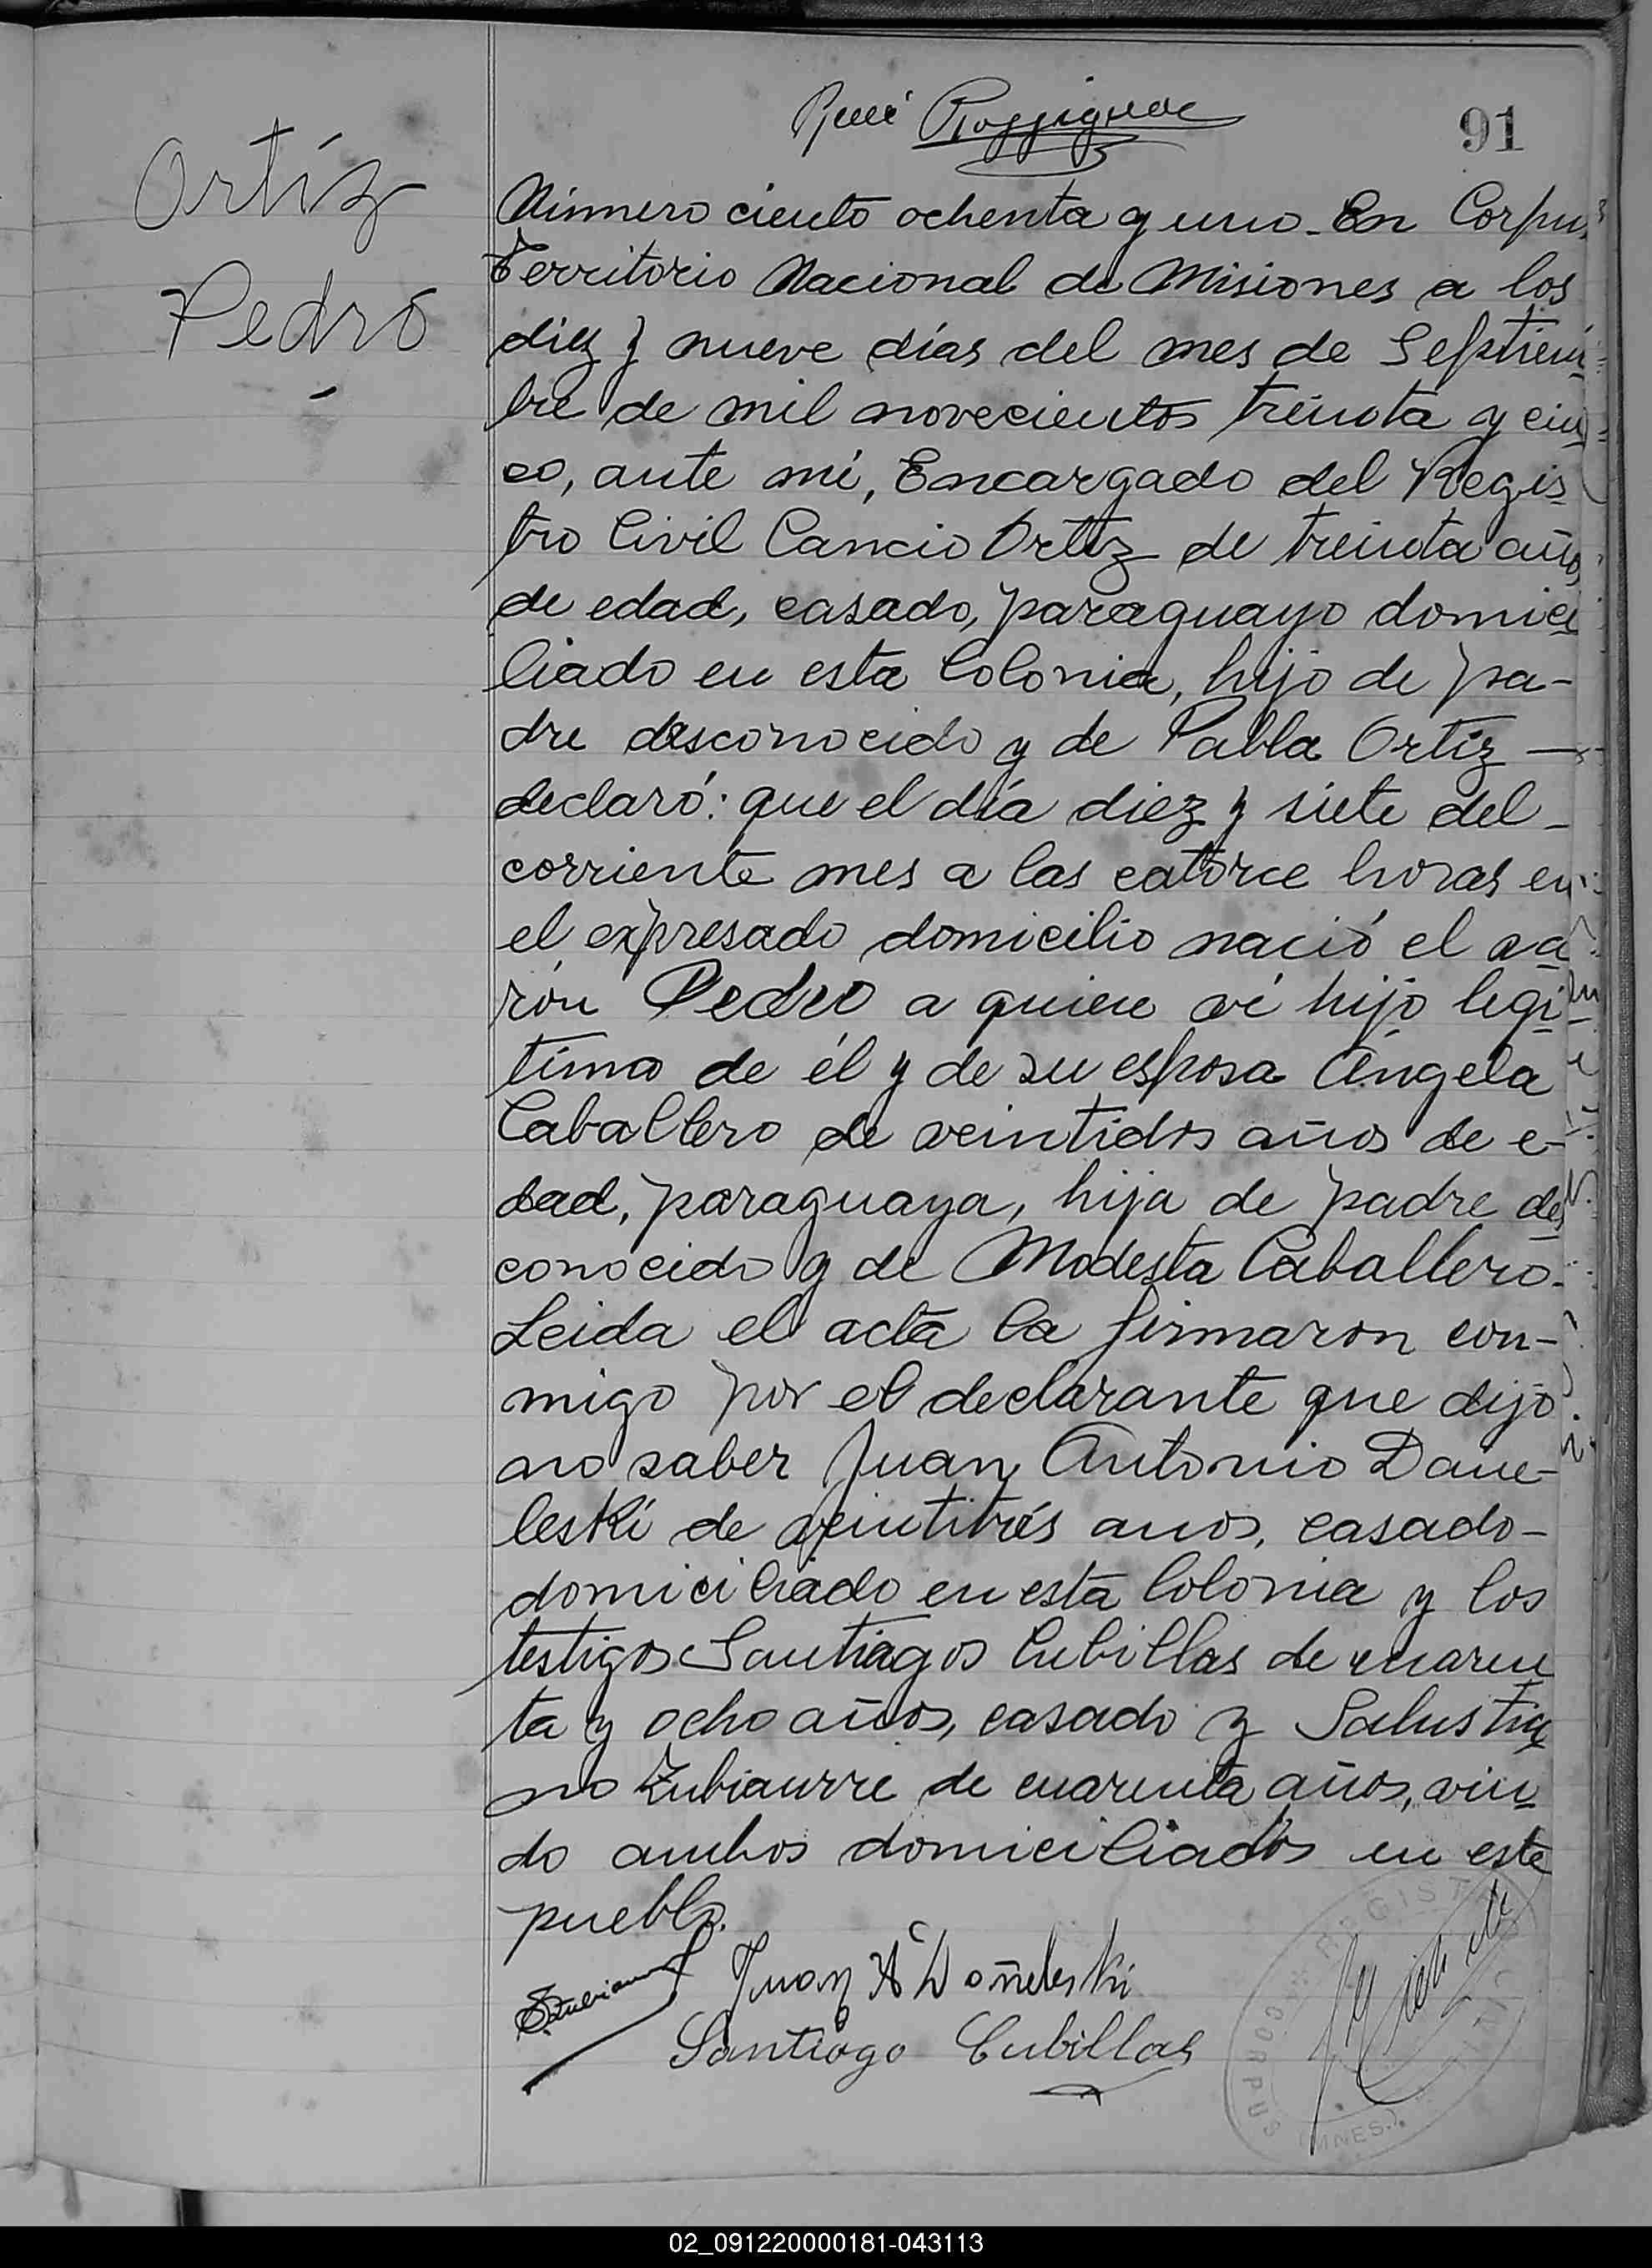 René Rossignol
91
Ortíz
Pedro
Número ciento ochenta y uno. En Corpus
Territorio Nacional de Misiones a los
diez y nueve días del mes de Septiem-
bre de mil novecientos treinta y cin-
co, ante mí, Encargado del Regis
tro Civil Cancio Ortiz de treinta años
de edad, casado, paraguayo domici
liado en esta Colonia, hijo de pa-
dre desconocido y de Pabla Ortiz —
declaró: que el día diez y siete del -
corriente mes a las catorce horas en
el expresado domicilio nació el va
rón Pedro a quien ví hijo legi
timo de él y de su esposa Angela
Caballero de veintidos años de e-
dad, paraguaya, hija de padre des
conocido y de Modesta Caballero.
Leida el acta la firmaron con-
migo por el declarante que dijo
no saber Juan Antonio Dane-
leski de veintitrés anos, casado -
domiciliado en esta Colonia y los
testigos Santiagos Cubillas de cuaren
ta y ocho años, casado y Salustia
no Zubiaurre de cuarenta años, viu
do ambos domiciliados en este
pueblo.
Juan A Dañeleski
Santiago Cubillas
REGISTRO CIVIL
CORPUS
(MNES.)
02_091220000181-043113